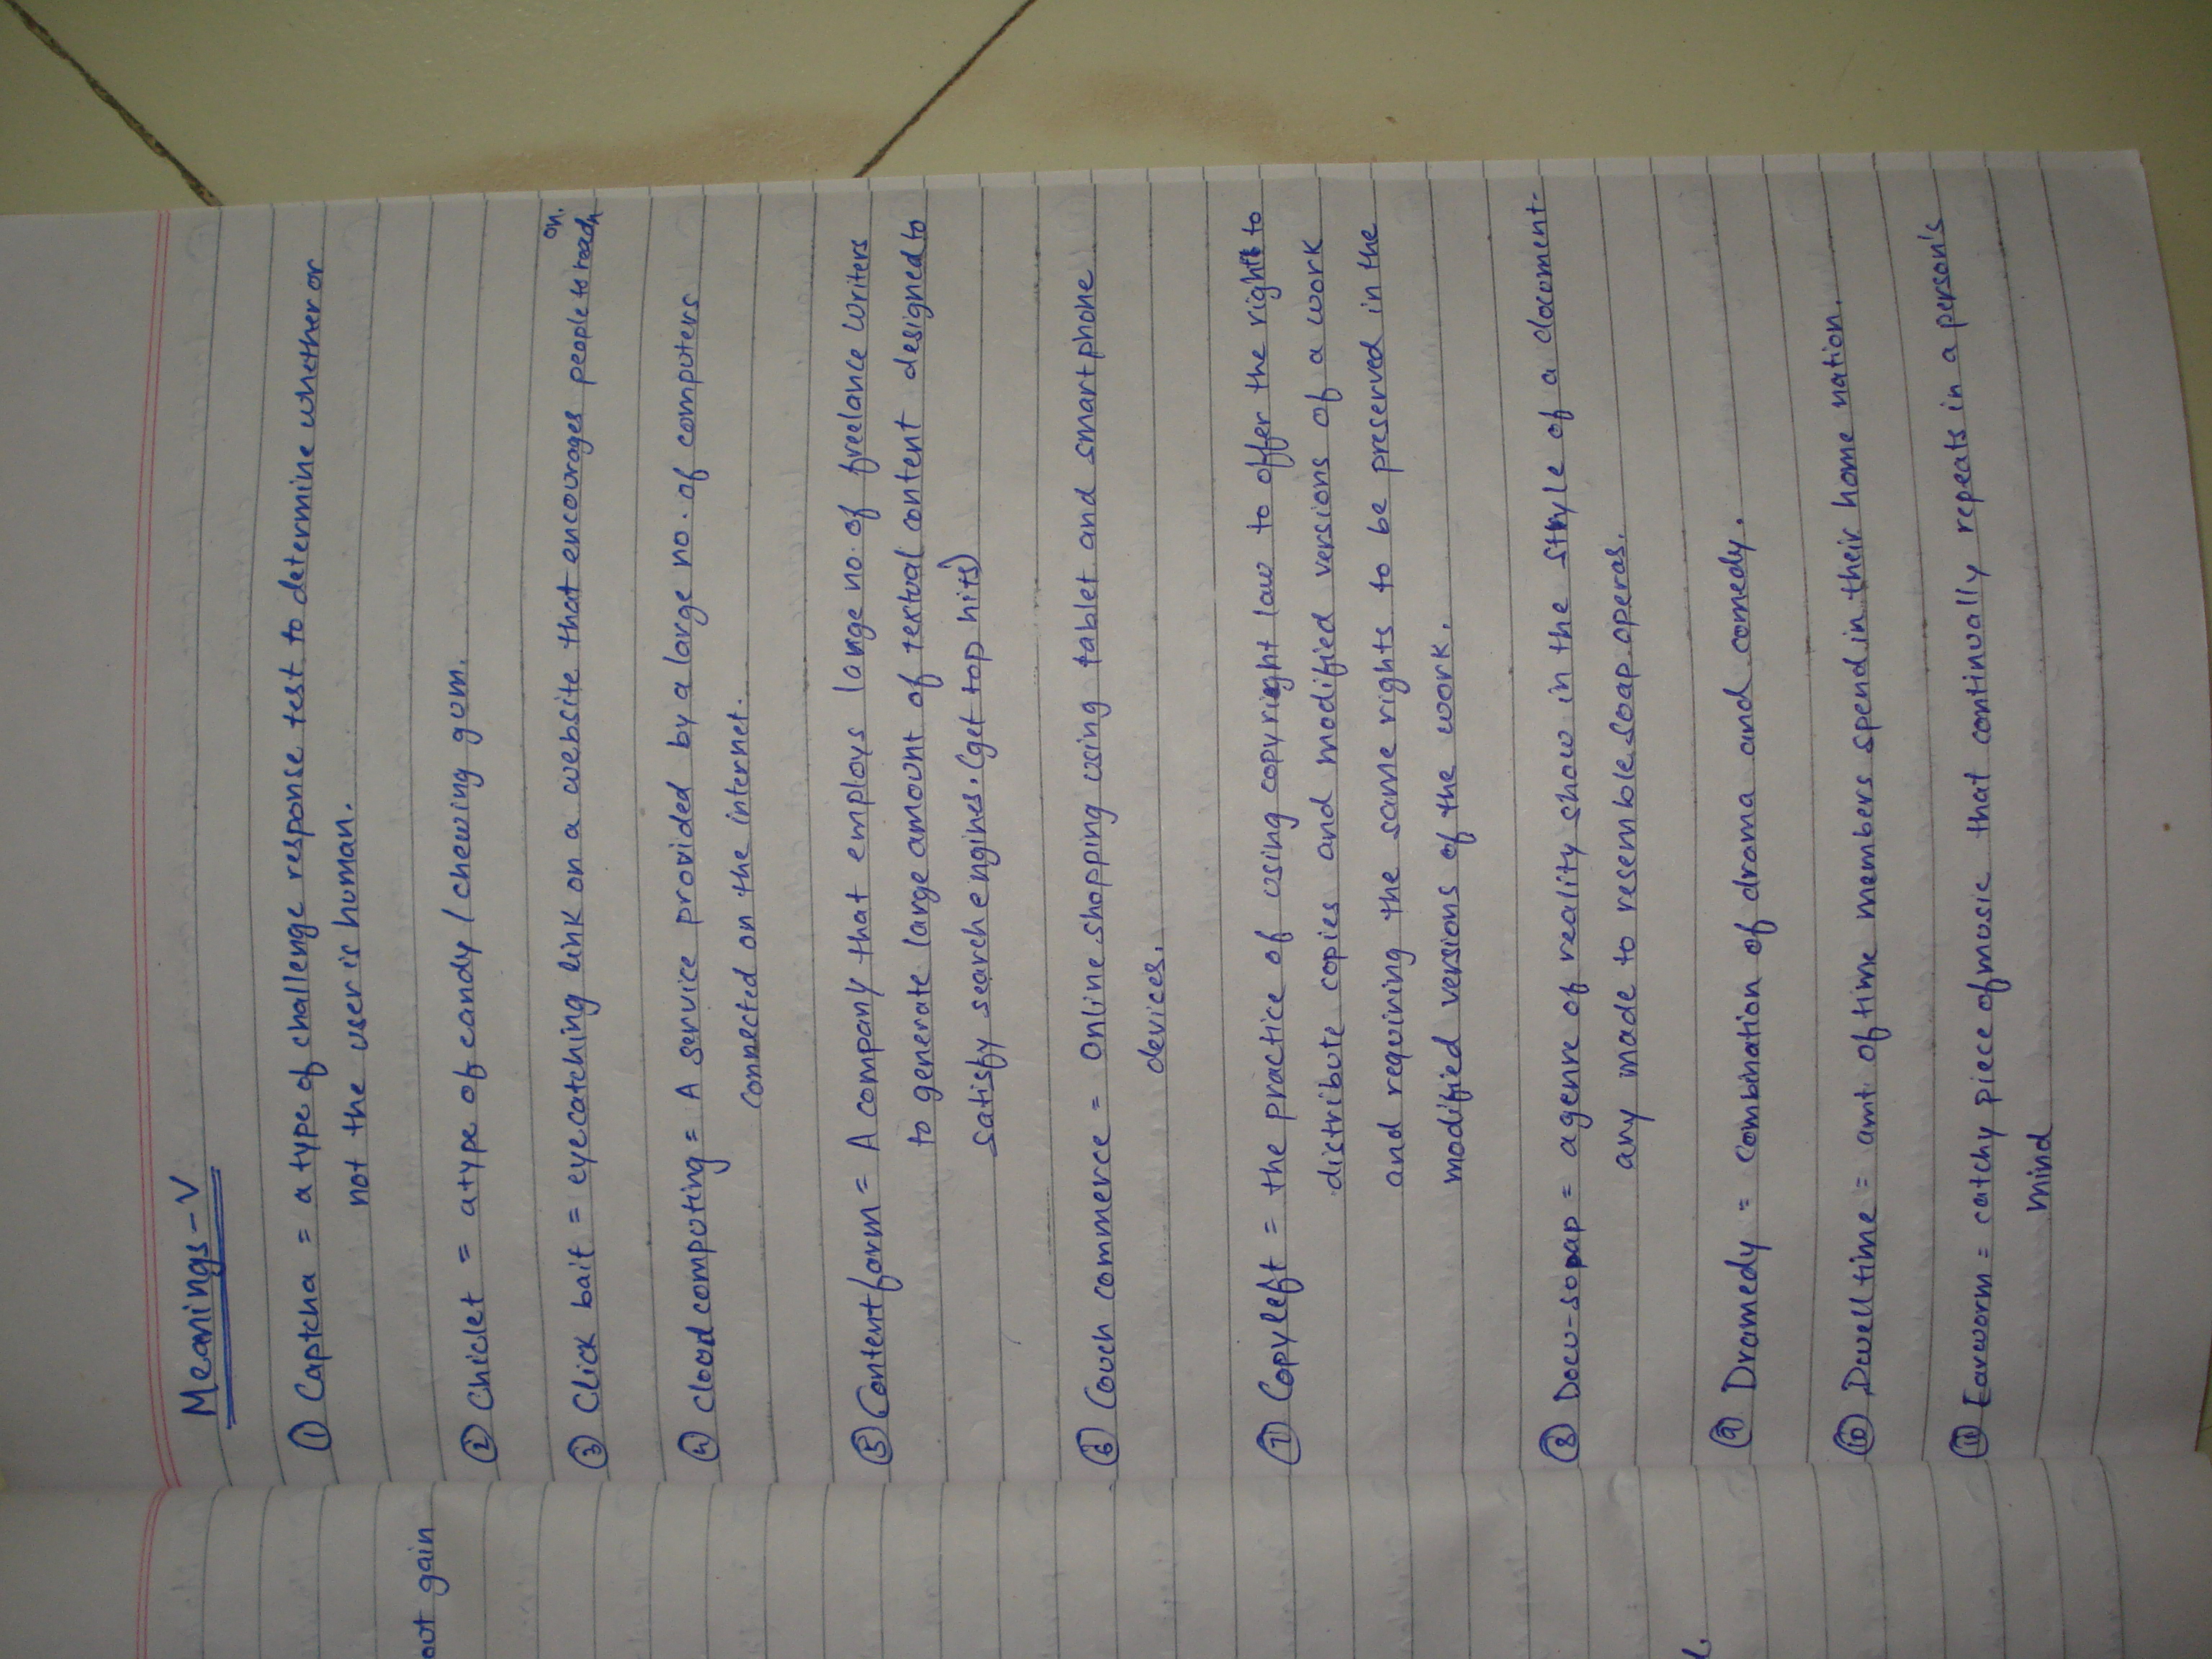 Meanings-V
① Captcha = a type of challenge response test to determine whether or
not the user is human.
② Chiclet = a type of candy / chewing gum.
③ Click bait = eye catching link on a website that encourages people to read on.
④ cloud computing = A service provided by a large no. of computers
connected on the internet.
⑤ Content farm = A company that employs large no. of freelance writers
to generate large amount of textual content designed to
satisfy search engines. (get top hits)
⑥ Couch commerce = Online shopping using tablet and smart phone
devices.
⑦ Copyleft = the practice of using copyright law to offer the right to
distribute copies and modified versions of a work
and requiring the same rights to be preserved in the
modified versions of the work.
⑧ Docu-soap = a genre of reality show in the style of a document-
any made to resemble soap operas.
⑨ Dramedy = combination of drama and comedy.
⑩ Dwell time = amt of time members spend in their home nation.
⑪ Earworm = catchy piece of music that continually repeats in a person's
mind
out gain